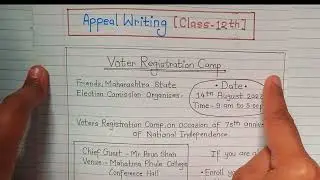 Appeal Writing [Class-12th]
Voter Registration Camp
Friends, Maharashtra State
Election Comission Organises
• Date •
14th August 202
Time - 9 am to 5
Voters Registration Camp on occasion of 76th
of National Independence
Chief Guest - Mr Arun Shah
Venue - Mahatma Phule College
Conference Hall
If you are
• Enroll